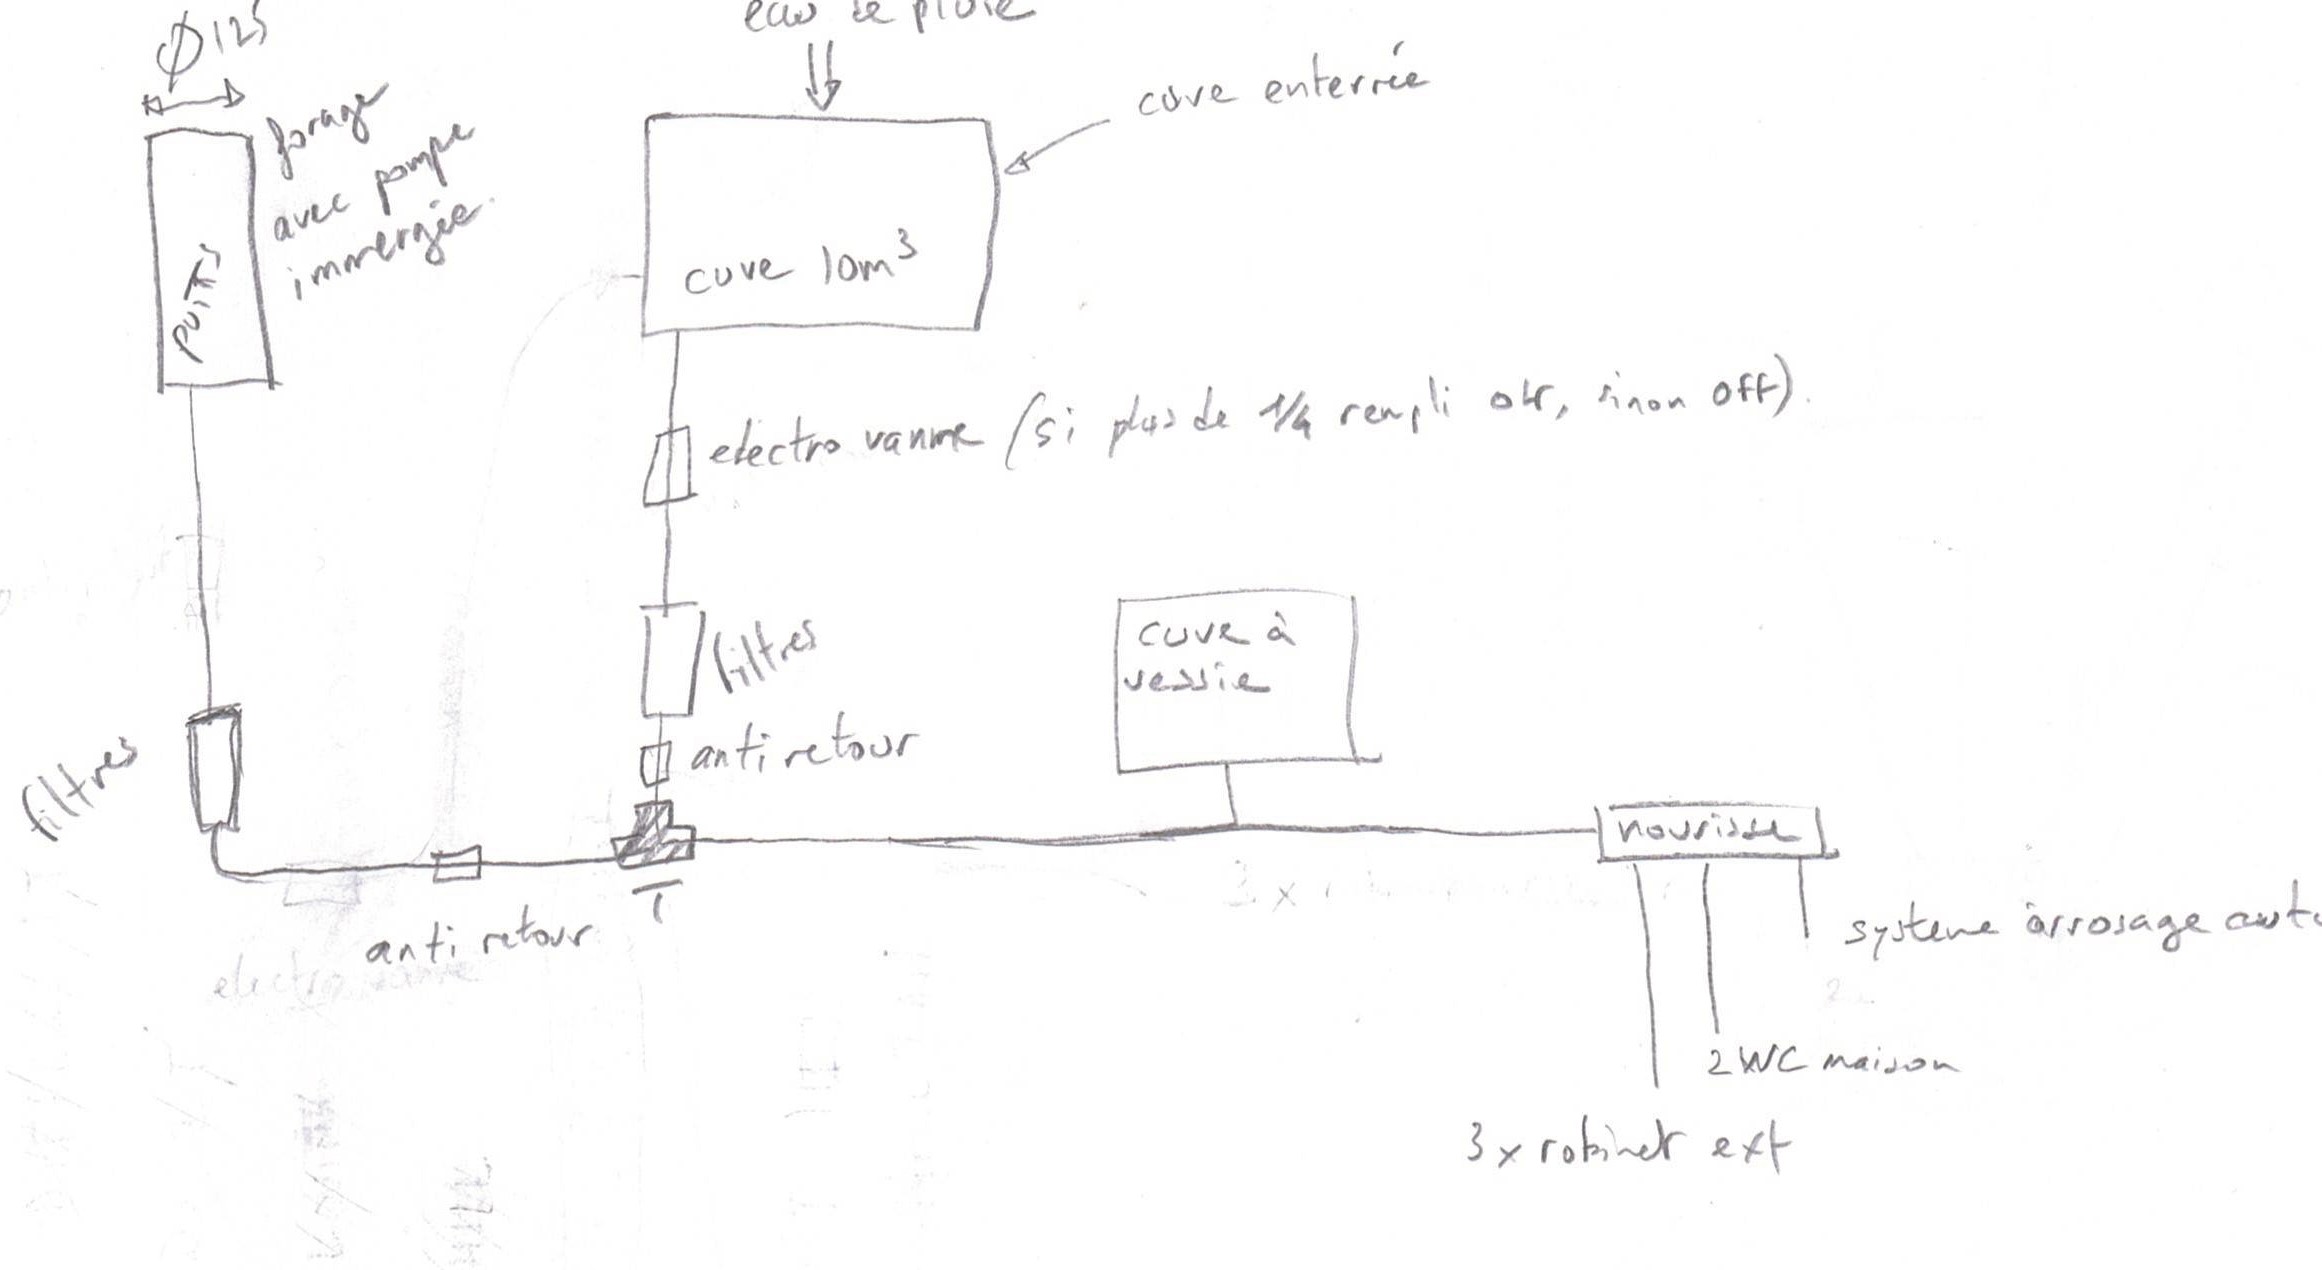 Ø125
eau de pluie
cuve enterrée
forage
avec pompe
immergée.
puits
cuve 10m³
electro vanne (si plus de 1/4 rempli ok, sinon off).
filtres
cuve à
vessie
filtres
anti retour
nourisse
T
anti retour
electro vanne
3 x
systeme arrosage auto
2 WC maison
3 x robinet ext